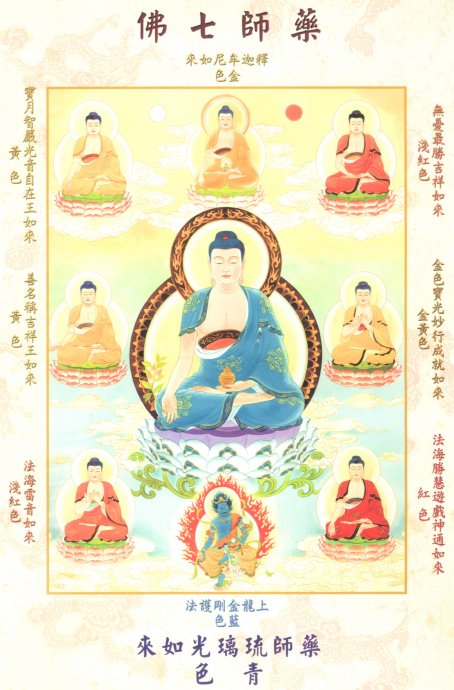 藥師七佛
釋迦牟尼如來
金色
無憂最勝吉祥如來
淺紅色
金色寶光妙行成就如來
金黃色
法海勝慧遊戲神通如來
紅色
寶月智嚴光音自在王如來
黃色
善名稱吉祥王如來
黃色
法海雷音如來
淺紅色
上龍金剛護法
藍色
藥師琉璃光如來
青色